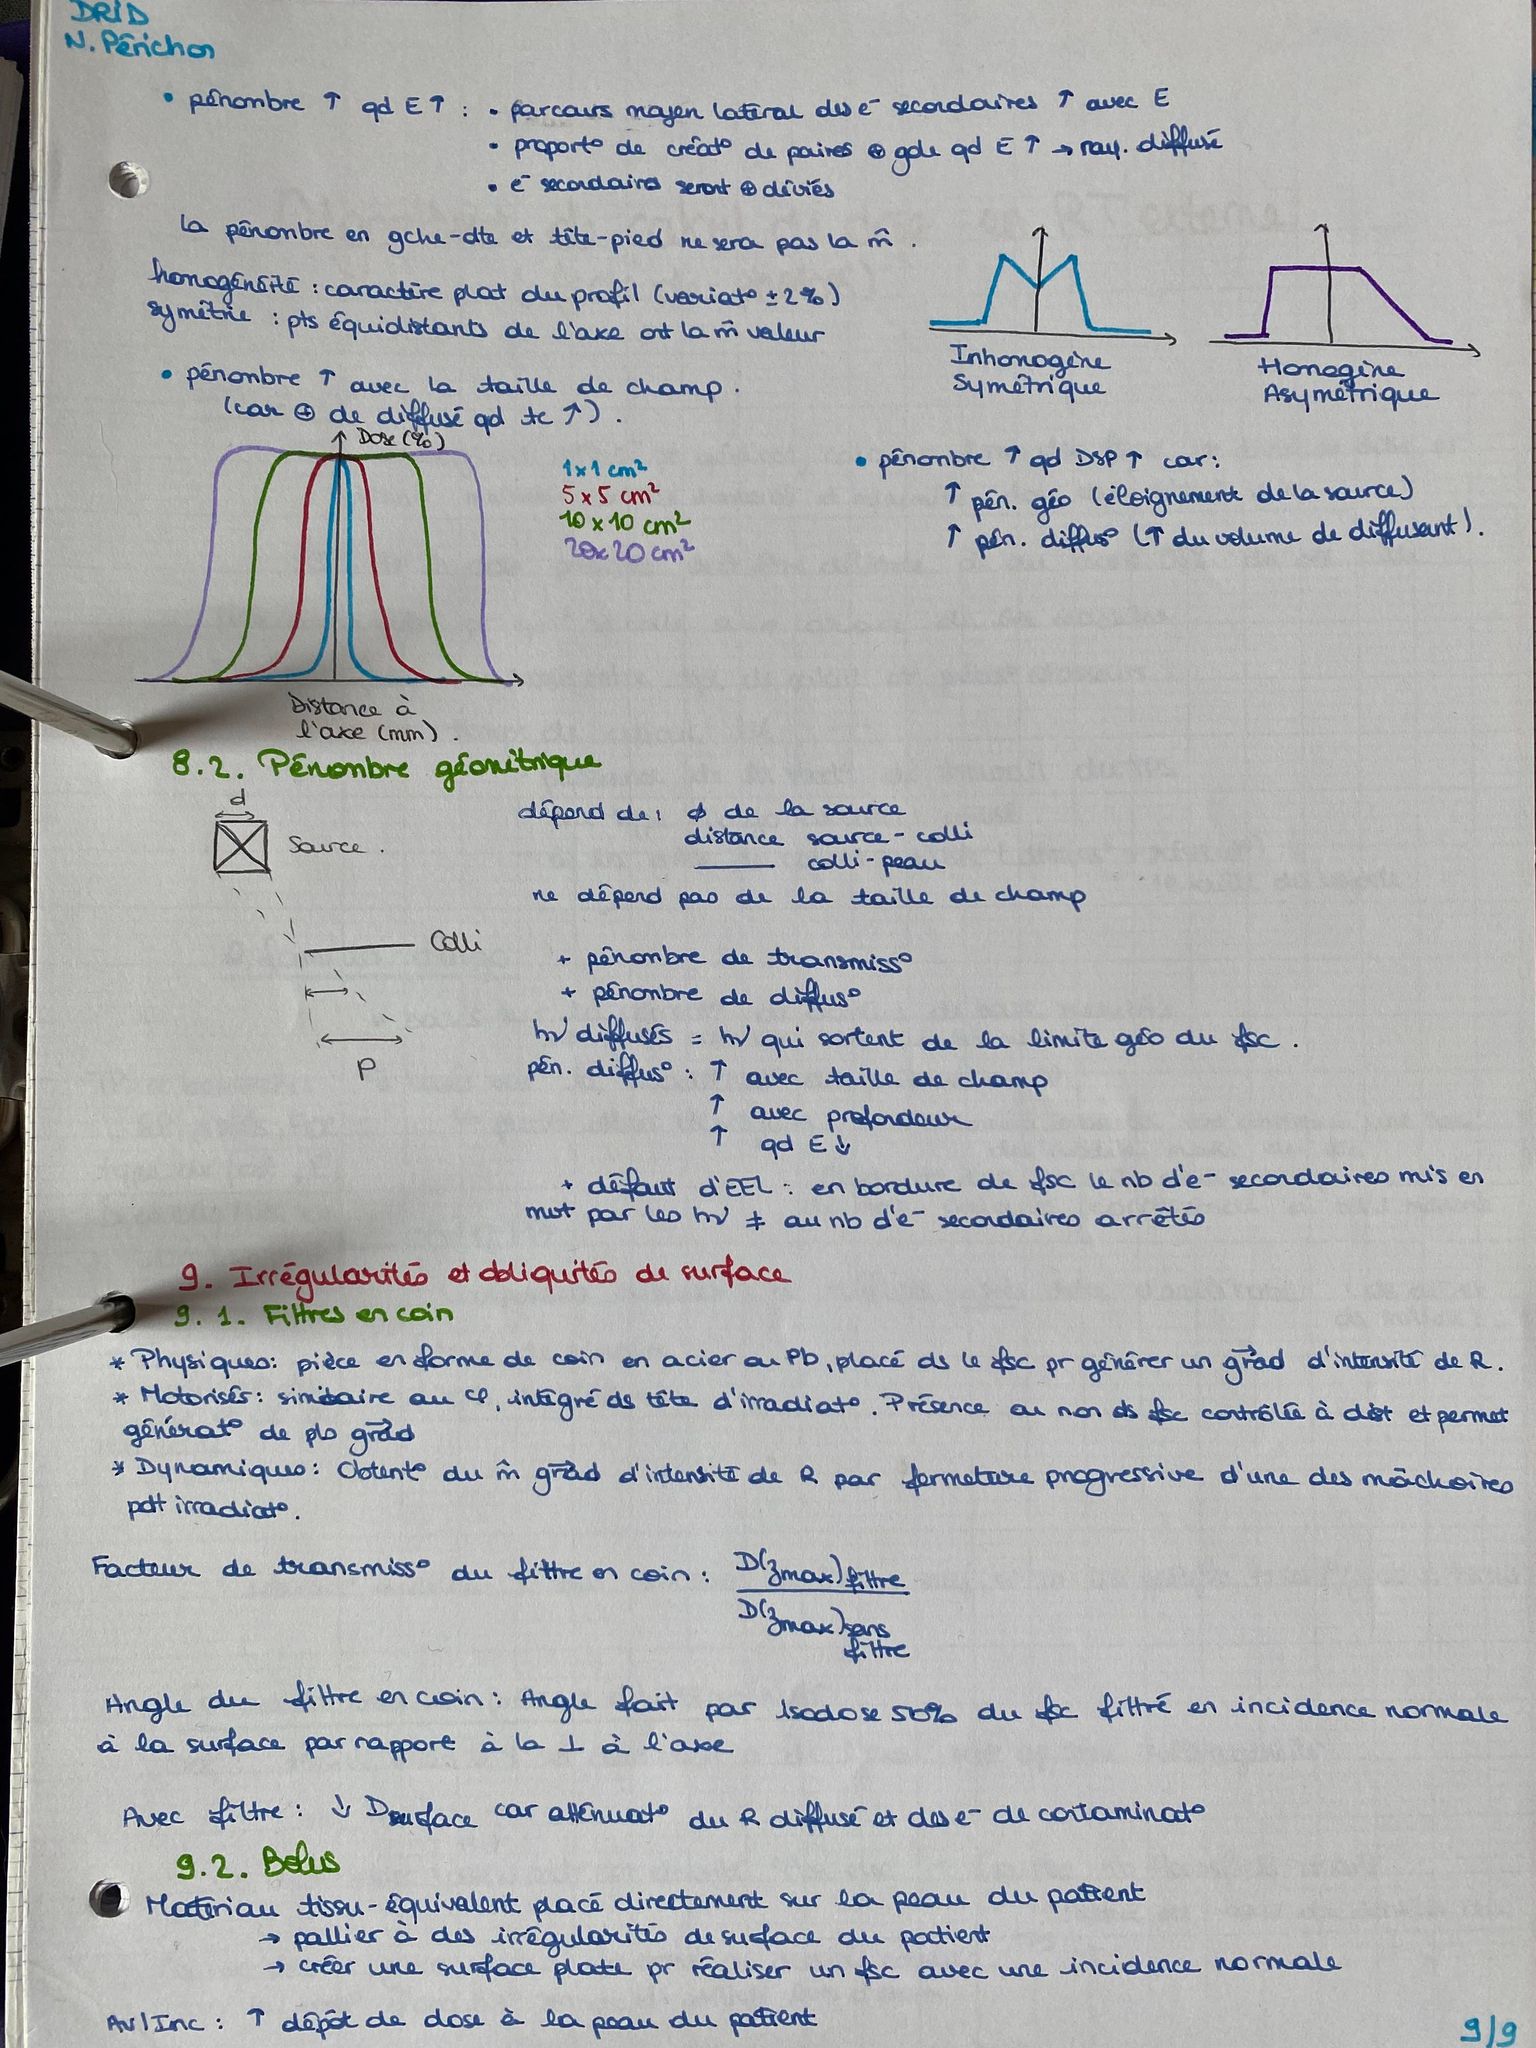 DRID
N. Périchon
• pénombre ↑ qd E↑ : • parcours moyen latéral des e⁻ secondaires ↑ avec E
• proport° de créat° de paires ⊕ gde qd E ↑ → ray. diffusé
• e⁻ secondaires seront ⊕ déviés
la pénombre en gche-dte et tête-pied ne sera pas la m̂ .
homogénéité : caractère plat du profil (variat° ± 2%)
symétrie : pts équidistants de l'axe ont la m̂ valeur
Inhomogène
Symétrique
Homogène
Asymétrique
• pénombre ↑ avec la taille de champ .
(car ⊕ de diffusé qd tc ↑) .
Dose (%)
1 x 1 cm²
5 x 5 cm²
10 x 10 cm²
20x 20 cm²
Distance à
l'axe (mm) .
• pénombre ↑ qd DSP ↑ car :
↑ pén. géo (éloignement de la source)
↑ pén. diffus° (↑ du volume de diffusant).
8.2. Pénombre géométrique
d
Source .
Colli
P
dépend de : ϕ de la source
distance source - colli
—— colli-peau
ne dépend pas de la taille de champ
+ pénombre de transmiss°
+ pénombre de diffus°
hν diffusés = hν qui sortent de la limite géo du fsc .
pén. diffus° : ↑ avec taille de champ
↑ avec profondeur
↑ qd E ↓
+ défaut d'EEL : en bordure de fsc le nb d'e⁻ secondaires mis en
mvt par les hν ≠ au nb d'e⁻ secondaires arrêtés
9. Irrégularités et obliquités de surface
9. 1. Filtres en coin
* Physiques : pièce en forme de coin en acier ou Pb, placé ds le fsc pr générer un grad d'intensité de R.
* Motorisés : similaire au φ, intégré ds tête d'irradiat°. Présence ou non ds fsc contrôlée à dist et permet
générat° de pls grad
* Dynamiques : Obtent° du m̂ grad d'intensité de R par fermeture progressive d'une des mâchoires
pdt irradiat°.
Facteur de transmiss° du filtre en coin : D(zmax)filtre
D(zmax)sans
filtre
Angle du filtre en coin : Angle fait par isodose 50% du fsc filtré en incidence normale
à la surface par rapport à la ⊥ à l'axe
Avec filtre : ↓ Dsurface car atténuat° du R diffusé et des e⁻ de contaminat°
9.2. Bolus
Matériau tissu-équivalent placé directement sur la peau du patient
→ pallier à des irrégularités de surface du patient
→ créer une surface plate pr réaliser un fsc avec une incidence normale
Av/Inc : ↑ dépôt de dose à la peau du patient
9/9